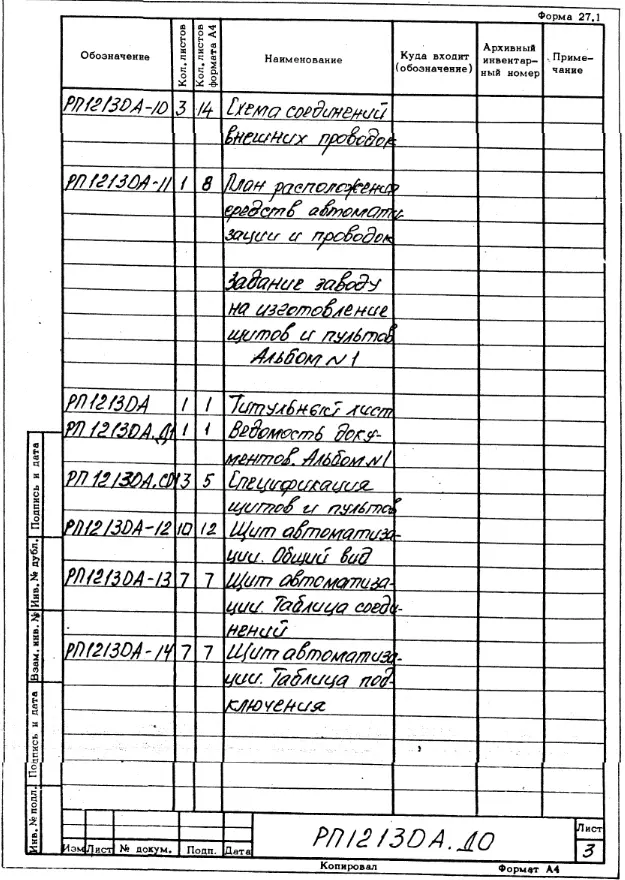 Форма 27.1
Обозначение Кол. листов Кол. листов формата А4 Наименование Куда входит (обозначение) Архивный инвентарный номер Примечание
РП1213DА-10 3 14 Схема соединений
внешних проводок
РП1213DА-11 1 8 План расположения
средств автомати-
зации и проводок
Задание заводу
на изготовление
щитов и пультов
Альбом N1
РП1213DА 1 1 Титульный лист
РП1213DА.Д1 1 1 Ведомость доку-
ментов. Альбом N1
РП1213DА.СО 3 5 Спецификация
щитов и пультов
РП1213DА-12 10 12 Щит автоматиза-
ции. Общий вид
РП1213DА-13 7 7 Щит автоматиза-
ции. Таблица соеди-
нений
РП1213DА-14 7 7 Щит автоматиза-
ции. Таблица под-
ключения
Инв. № подл. Подпись и дата Взам. инв. № Инв. № дубл. Подпись и дата
РП1213DА.ДО
Лист
3
Изм Лист № докум. Подп. Дата
Копировал Формат А4